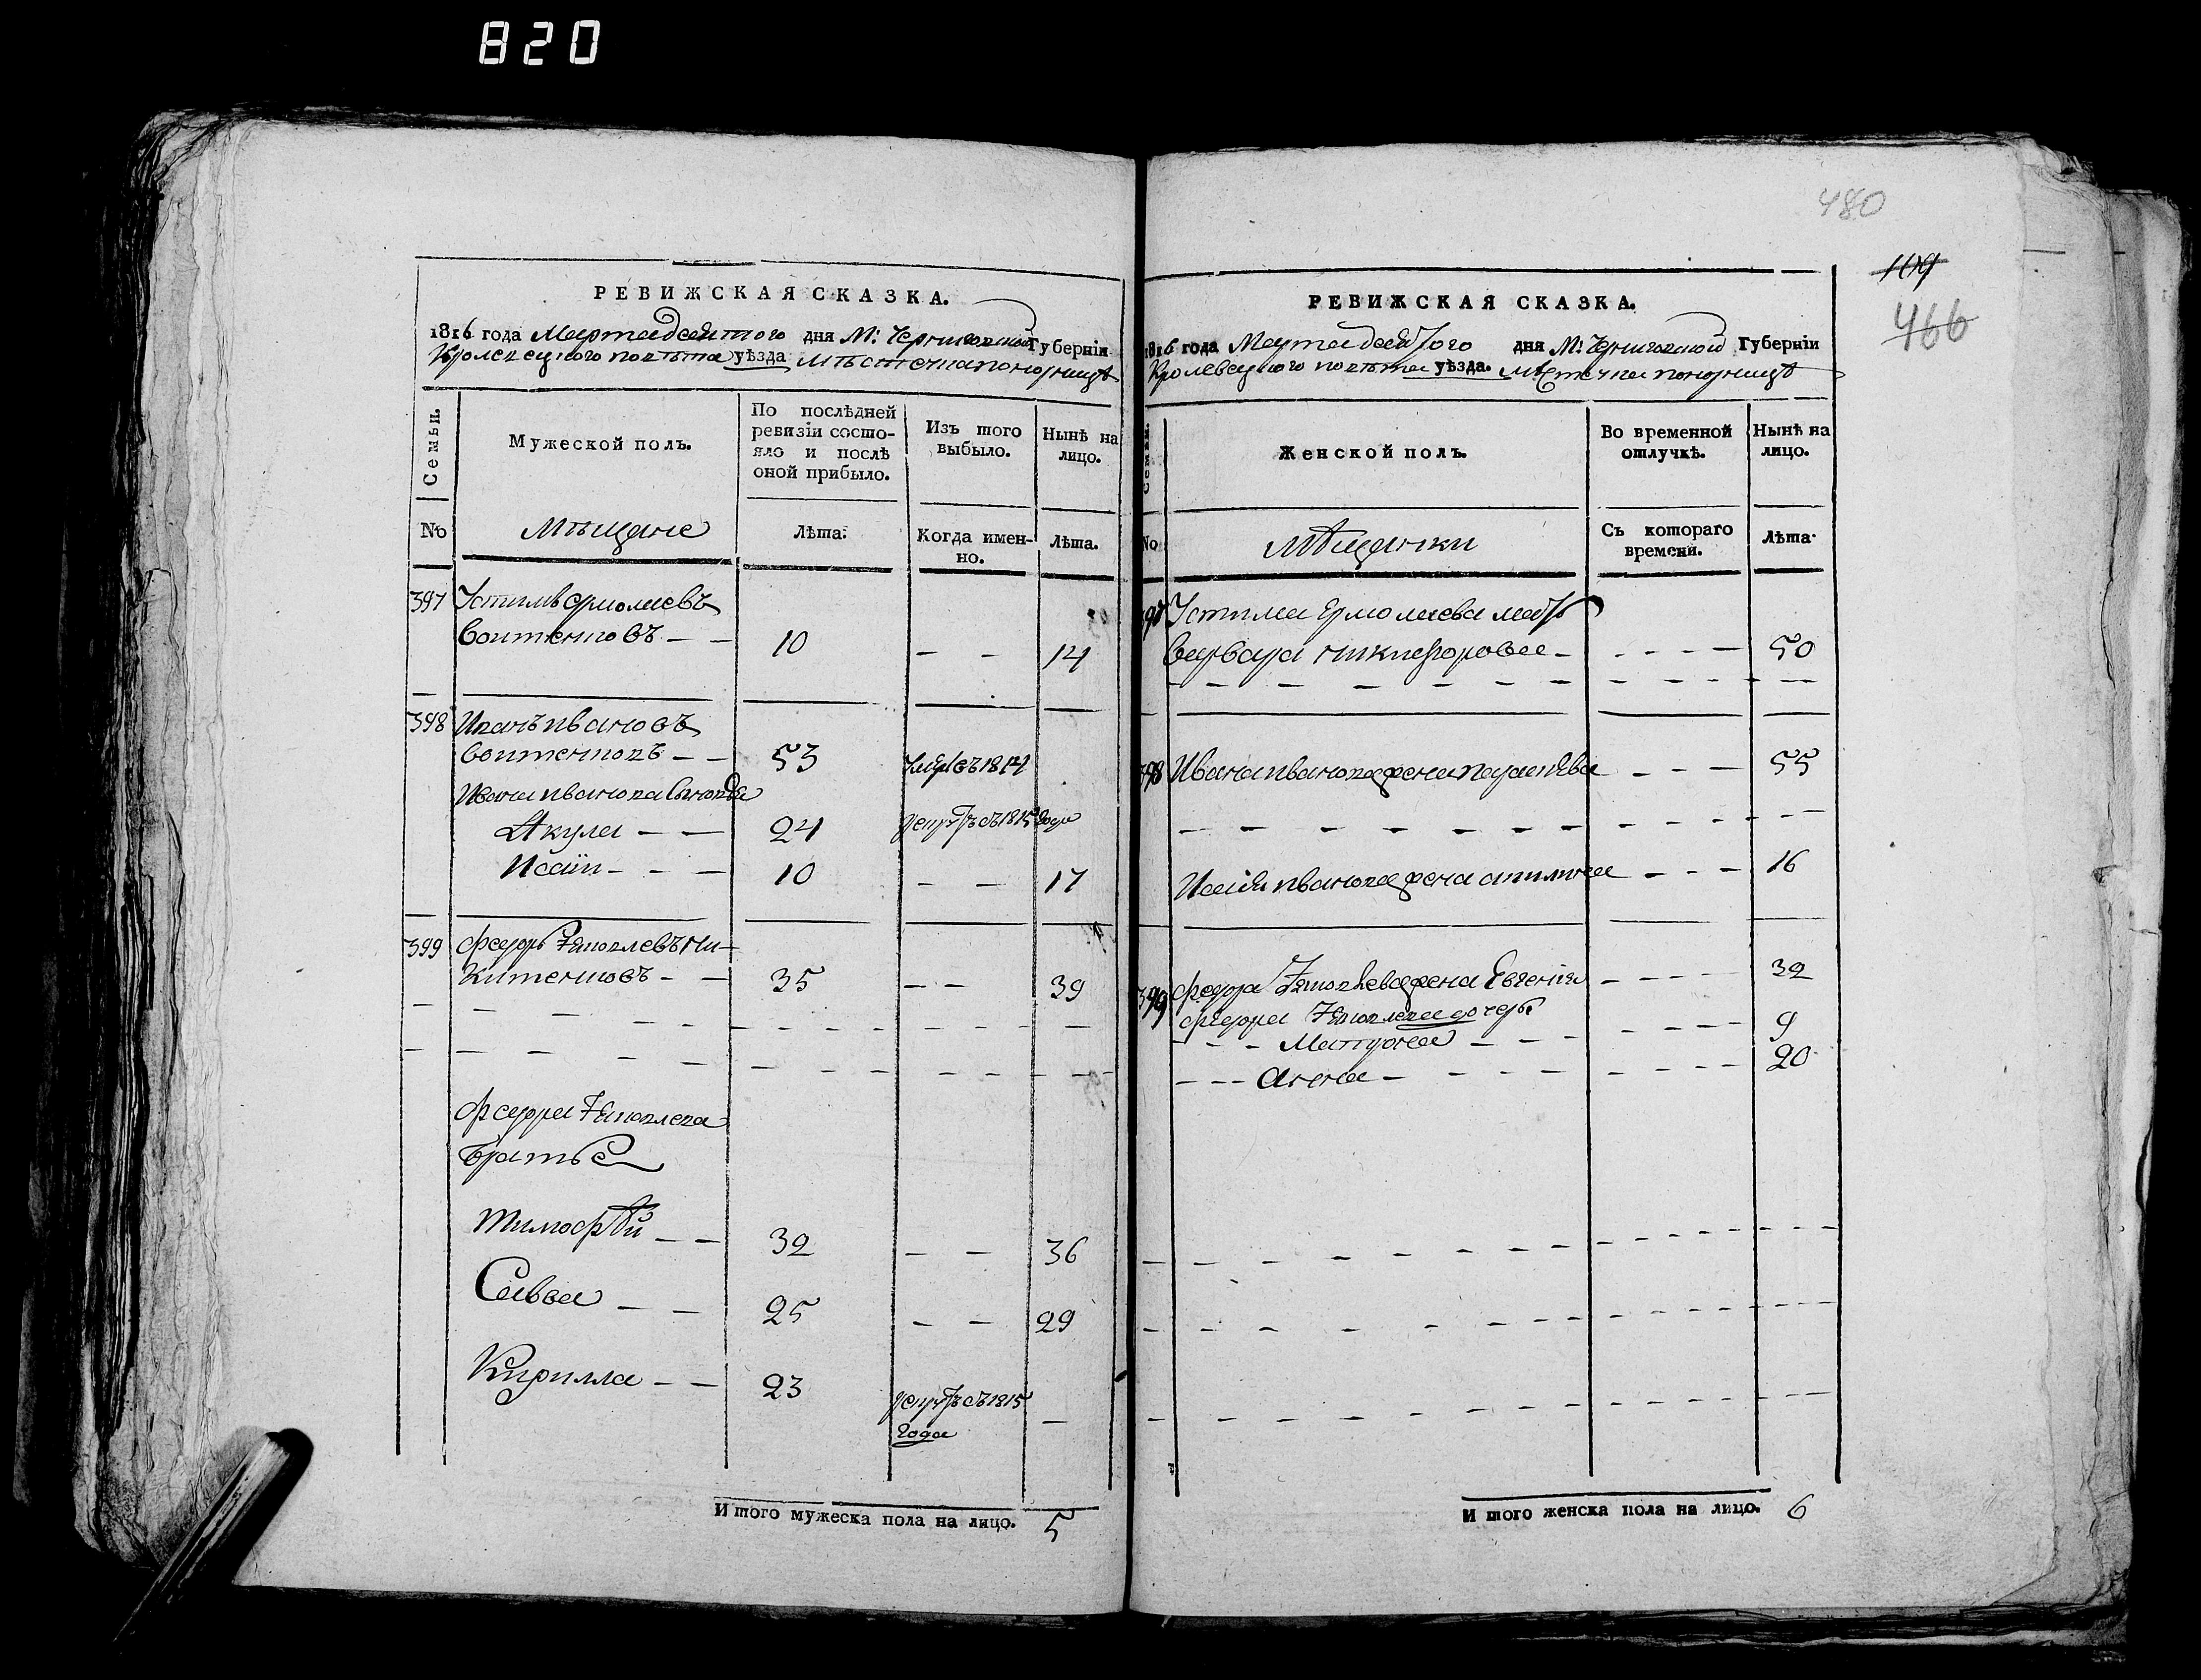 820
480
109
466
РЕВИЖСКАЯ СКАЗКА.
1816 года Марта десятого дня М: Черниговской Губерніи
Кролевецкого повѣта уѣзда Мѣстечка понорницѣ
Семьи.
Мужеской полъ.
По послѣдней ревизіи состояло и послѣ оной прибыло.
Изъ того выбыло.
Нынѣ на лицо.
No
Мѣщане
Лѣта.
Когда именно.
Лѣта.
397 Устимъ ермолаевъ
воитенковъ — — 10 — — 14
398 Иванъ ивановъ
воитенковъ — — 53 умре въ 1814
Ивана иванова сыновья
Акула — — 24 рекрутъ съ 1815 года
Исаіи — — — 10 — — 17
399 федоръ Яковлевъ ни-
китенковъ — — 35 — — 39
федора Яковлева
братья
тимофѣй — — 32 — — 36
Савва — — 25 — — 29
Кирилла — — 23 рекрутъ съ 1815 года —
Итого мужеска пола на лицо. 5
РЕВИЖСКАЯ СКАЗКА.
1816 года Марта десятого дня М: Черниговской Губерніи
Кролевецкого повѣта уѣзда. Мѣстечка понорницѣ
Семьи.
Женской полъ.
Во временной отлучкѣ.
Нынѣ на лицо.
No
Мѣщанки
Съ котораго времени.
Лѣта.
397 Устима Ермолаева мать
варвара никифорова — — — — — 50
398 Ивана иванова жена — — — 55
Исаія иванова жена — — — 16
399 федора Яковлева жена Евгенія — — — — 32
федора Яковлева дочеры
— — — Матрона — — — 9
— — — Анна — — — 20
Итого женска пола на лицо. 6